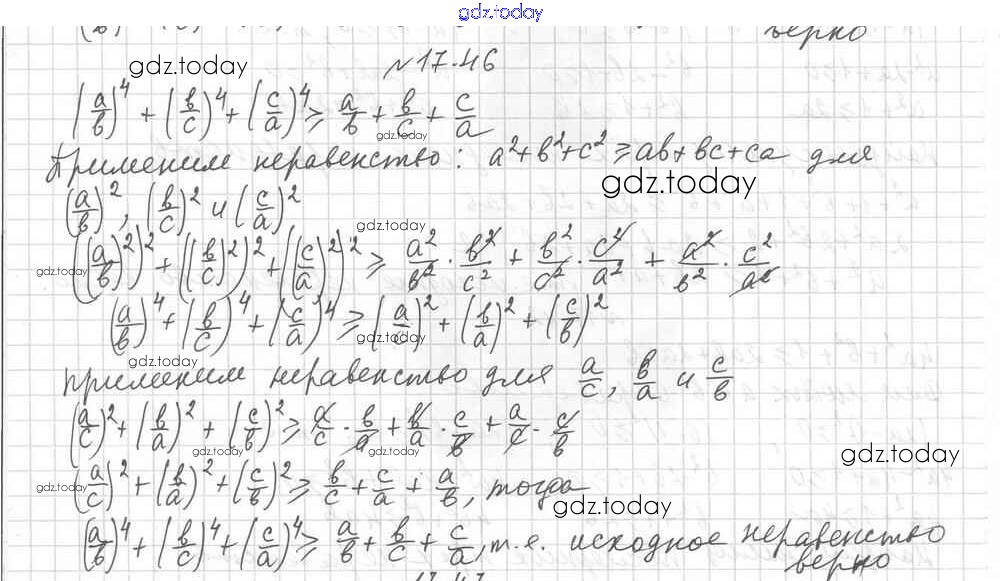 gdz.today
верно
№17.46
gdz.today
(a/b)^4 + (b/c)^4 + (c/a)^4 ≥ a/b + b/c + c/a
gdz.today
Применим неравенство: a²+b²+c² ≥ ab+bc+ca для
gdz.today
(a/b)², (b/c)² и (c/a)²
gdz.today
((a/b)²)² + ((b/c)²)² + ((c/a)²)² ≥ a²/b² · b²/c² + b²/c² · c²/a² + a²/b² · c²/a²
gdz.today gdz.today
(a/b)^4 + (b/c)^4 + (c/a)^4 ≥ (a/c)² + (b/a)² + (c/b)²
gdz.today
gdz.today
применим неравенство для a/c, b/a и c/b
(a/c)² + (b/a)² + (c/b)² ≥ a/c · b/a + b/a · c/b + a/c · c/b
gdz.today gdz.today
gdz.today
(a/c)² + (b/a)² + (c/b)² ≥ b/c + c/a + a/b, тогда
gdz.today
gdz.today
(a/b)^4 + (b/c)^4 + (c/a)^4 ≥ a/b + b/c + c/a, т.е. исходное неравенство
верно